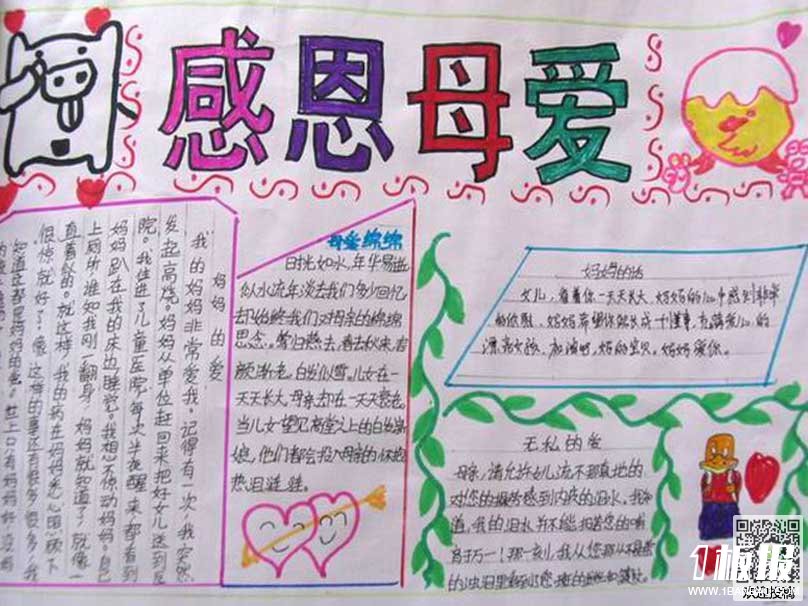 感恩母爱
妈妈的爱
我的妈妈非常爱我。记得有一次，我突然
发起高烧。妈妈从单位赶回来把好女儿送到医
院。我住进了儿童医院，每次半夜醒来都看到
妈妈趴在我的床边睡觉。我想不惊动妈妈。自己
上厕所，谁知我刚一翻身，妈妈就知道了，就像一
直看似的。就这样，我的病在妈妈悉心照顾下
很快就好了。像这样的事还有很多很多，我
知道这都是妈妈的爱。世上只有妈妈好，没有
母爱绵绵
时光如水，年华易逝
似水流年淡去我们多少回忆
却始终我们对母亲的绵绵
思念。莺归燕去，春去秋来，容
颜渐老，白发似雪。儿女在一
天天长大，母亲却在一天天衰老
当儿女望见高堂之上的白发亲
娘，他们都会投入母亲的怀抱
热泪涟涟。
妈妈的话
女儿，看着你一天天长大，妈妈的心中感到非常
的欣慰，妈妈希望你能成
漂亮女孩，加油吧，妈的宝贝。妈妈爱你。
无私的爱
母亲，请允许女儿流不那真地的
对您的
感到内疚的泪水，我知
道，我的泪水并不能
您的哺
育于万一！那一刻，我从您那
的浊泪里看到了您
1板报
WWW.1BANBAO.COM
欢迎投稿